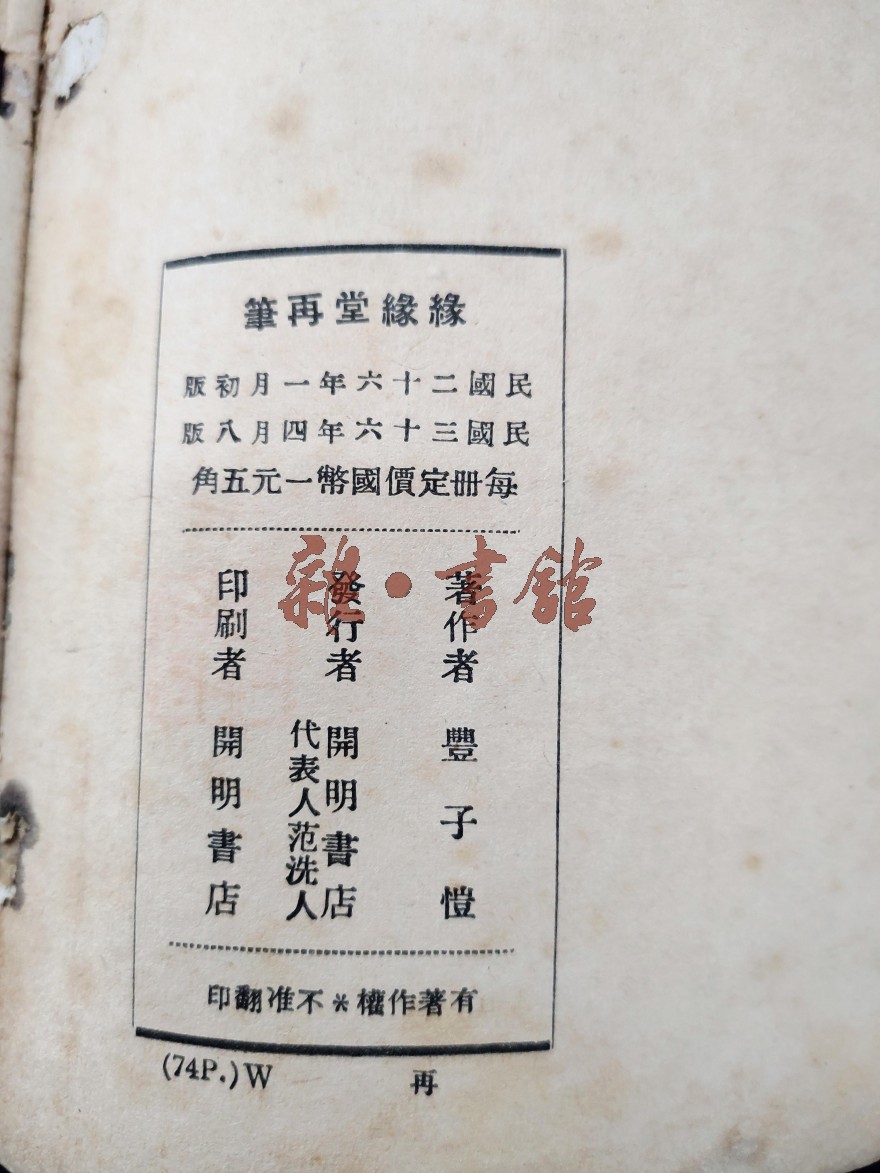 緣緣堂再筆
民國二十六年一月初版
民國三十六年四月八版
每册定價國幣一元五角
著作者 豐子愷
發行者 開明書店
代表人范洗人
印刷者 開明書店
有著作權*不准翻印
(74P.)W 再
雜·書館